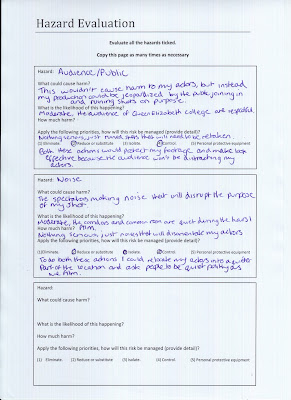 Hazard Evaluation
Evaluate all the hazards ticked.
Copy this page as many times as necessary
Hazard: Audience/Public
What could cause harm?
This wouldn't cause harm to my actors, but instead
my production could be jeopardized by the public joining in
and ruining shots on purpose.
What is the likelihood of this happening?
Moderate, the audience of Queen Elizabeth college are respectful.
How much harm?
Nothing serious, just ruined shots that will need to be retaken.
Apply the following priorities, how will this be managed (provide detail)?
(1) Eliminate (2) Reduce or substitute (3) Isolate (4) Control (5) Personal protective equipment
Both these actions would protect my footage and make look
effective because the audience won't be distracting my
actors.
Hazard: Noise
What could cause harm?
The spectators making noise that will disrupt the purpose
of my shot.
What is the likelihood of this happening?
Moderate, the corridors and common room are quiet during the hours I
How much harm? film.
Nothing serious, just noises that will disorientate my actors
Apply the following priorities, how will this risk be managed (provide detail)?
(1) Eliminate (2) Reduce or substitute (3) Isolate (4) Control (5) Personal protective equipment
To do both these actions I could relocate my actors into a quieter
part of the location and ask people to be quiet politely as
we film.
Hazard:
What could cause harm?
What is the likelihood of this happening?
How much harm?
Apply the following priorities, how will this risk be managed (provide detail)?
(1) Eliminate (2) Reduce or substitute (3) Isolate (4) Control (5) Personal protective equipment